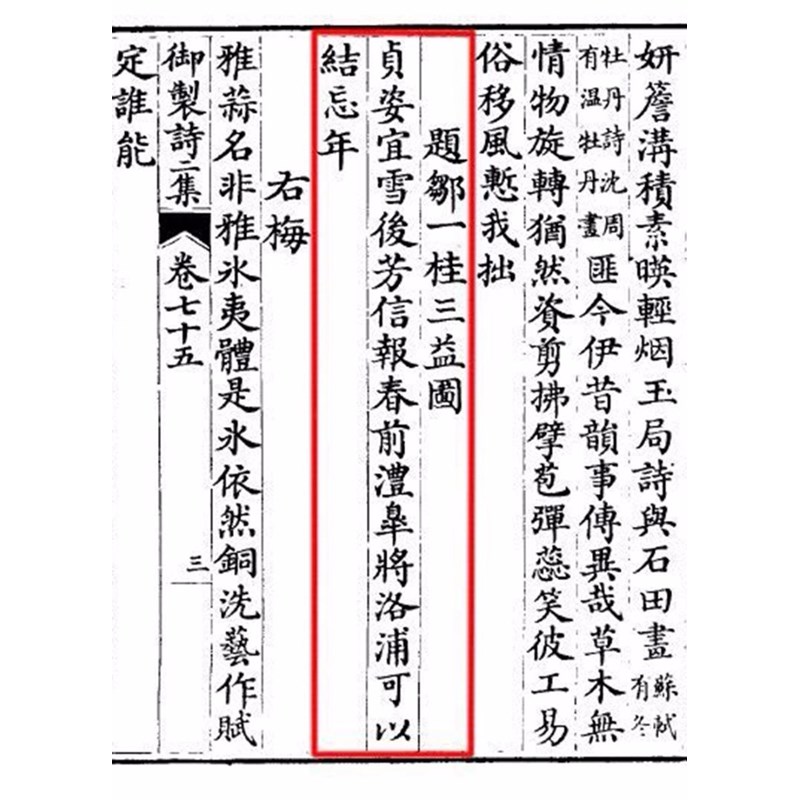 妍簷溝積素暎輕烟玉局詩與石田畫蘇軾有冬
牡丹詩沈周有溫牡丹畫匪今伊昔韻事傳異哉草木無
情物旋轉猶然資剪拂擘苞彈蕊笑彼工易
俗移風慙我拙
題鄒一桂三益圖
貞姿宜雪後芳信報春前澧皐將洛浦可以
結忘年
右梅
雅蒜名非雅氷夷體是氷依然銅洗藝作賦
御製詩二集 卷七十五 三
定誰能